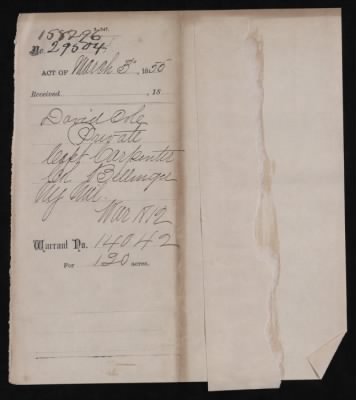 158296
No. 29504
ACT OF March 3d, 1855
Received , 18
David Cole
Private
Capt Carpenter
Col Bellinger
NY Mil.
War 1812
Warrant No. 14042
For 120 acres.